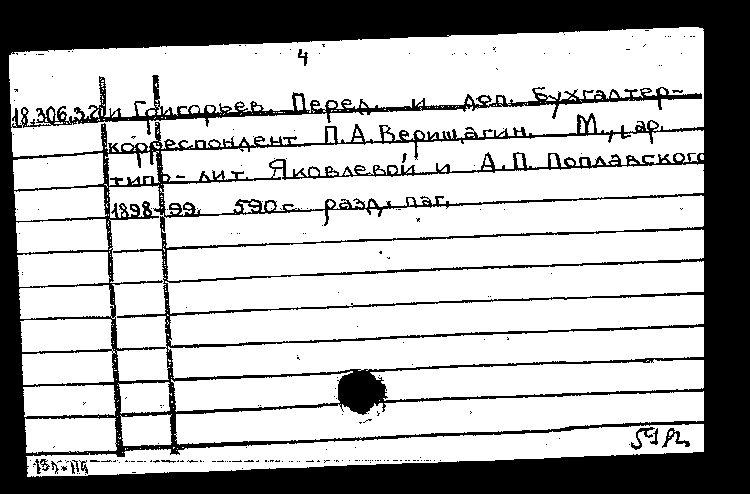 4
18.306.3.20 и Григорьев. Перед. и доп. Бухгалтер-
корреспондент П.А.Верищагин. М.,
типо-лит. Яковлевой и А.П. Поплавского
1898-99. 590 с. разд. паг.